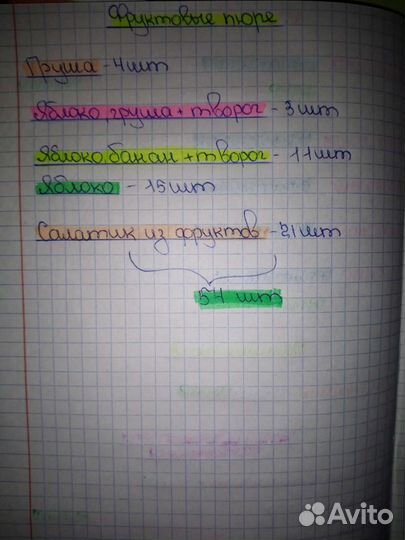 Фруктовые пюре
Груша - 4шт
Яблоко, груша + творог - 3шт
Яблоко, банан + творог - 11шт
Яблоко - 15шт
Салатик из фруктов - 21шт
54 шт
Avito